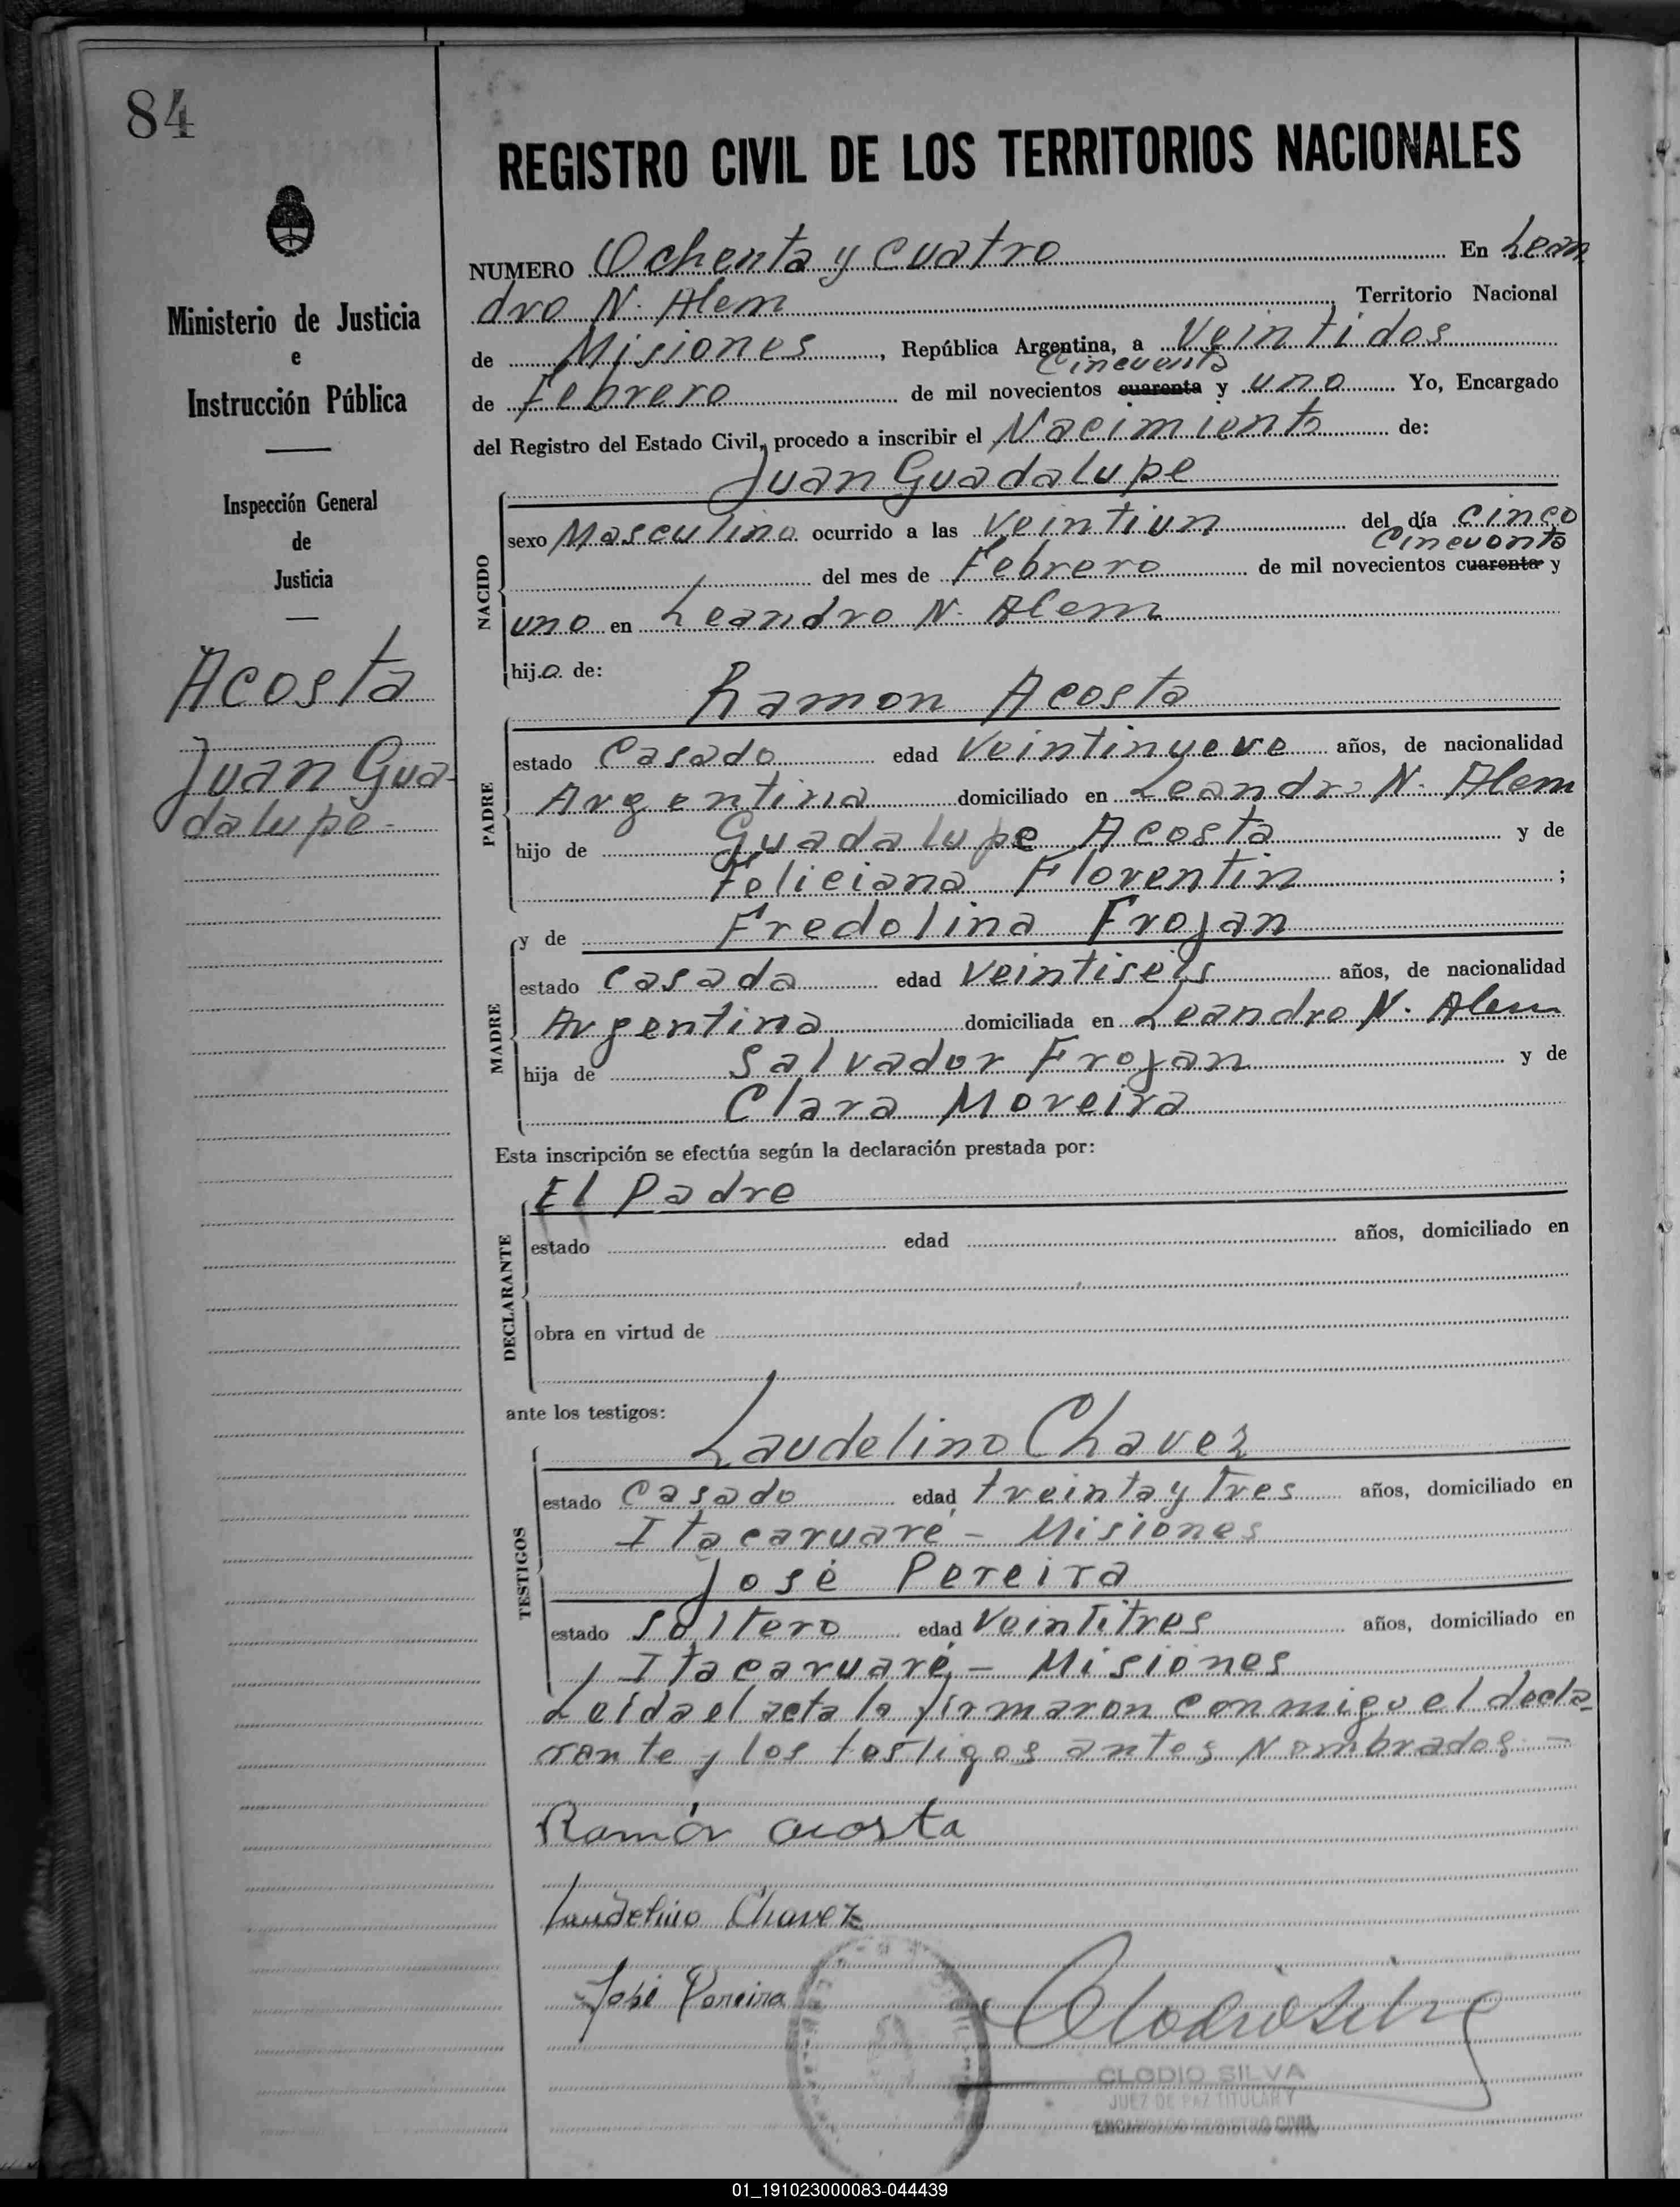 84
Ministerio de Justicia
e
Instrucción Pública
Inspección General
de
Justicia
Acosta
Juan Gua-
dalupe-
REGISTRO CIVIL DE LOS TERRITORIOS NACIONALES
NUMERO Ochenta y cuatro En Lean
dro N. Alem, Territorio Nacional
de Misiones, República Argentina, a Veintidos
cincuenta
de Febrero de mil novecientos cuarenta y uno Yo, Encargado
del Registro del Estado Civil, procedo a inscribir el Nacimiento de:
Juan Guadalupe
NACIDO
sexo Masculino ocurrido a las Veintiun del día cinco
cincuenta
del mes de Febrero de mil novecientos cuarenta y
uno en Leandro N. Alem
hijo de:
Ramon Acosta
PADRE
estado Casado edad Veintinueve años, de nacionalidad
Argentina domiciliado en Leandro N. Alem
hijo de Guadalupe Acosta y de
Feliciana Florentin;
y de Fredolina Frojan
MADRE
estado casada edad Veintiseis años, de nacionalidad
Argentina domiciliada en Leandro N. Alem
hija de Salvador Frojan y de
Clara Moreira
Esta inscripción se efectúa según la declaración prestada por:
El Padre
DECLARANTE
estado edad años, domiciliado en
obra en virtud de
ante los testigos:
Laudelino Chavez
TESTIGOS
estado Casado edad treinta y tres años, domiciliado en
Itacaruaré - Misiones
José Pereira
estado soltero edad Veintitres años, domiciliado en
Itacaruaré - Misiones
Leída el acta la firmaron conmigo el decla-
rante y los testigos antes Nombrados -
Ramón Acosta
Laudelino Chavez
José Pereira
Clodio Silva
CLODIO SILVA
JUEZ DE PAZ TITULAR Y
ENCARGADO REGISTRO CIVIL
01_191023000083-044439